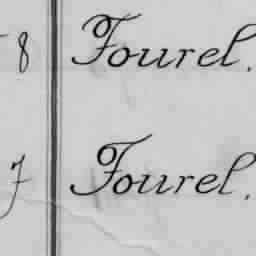 8 Fourel.
7 Fourel.